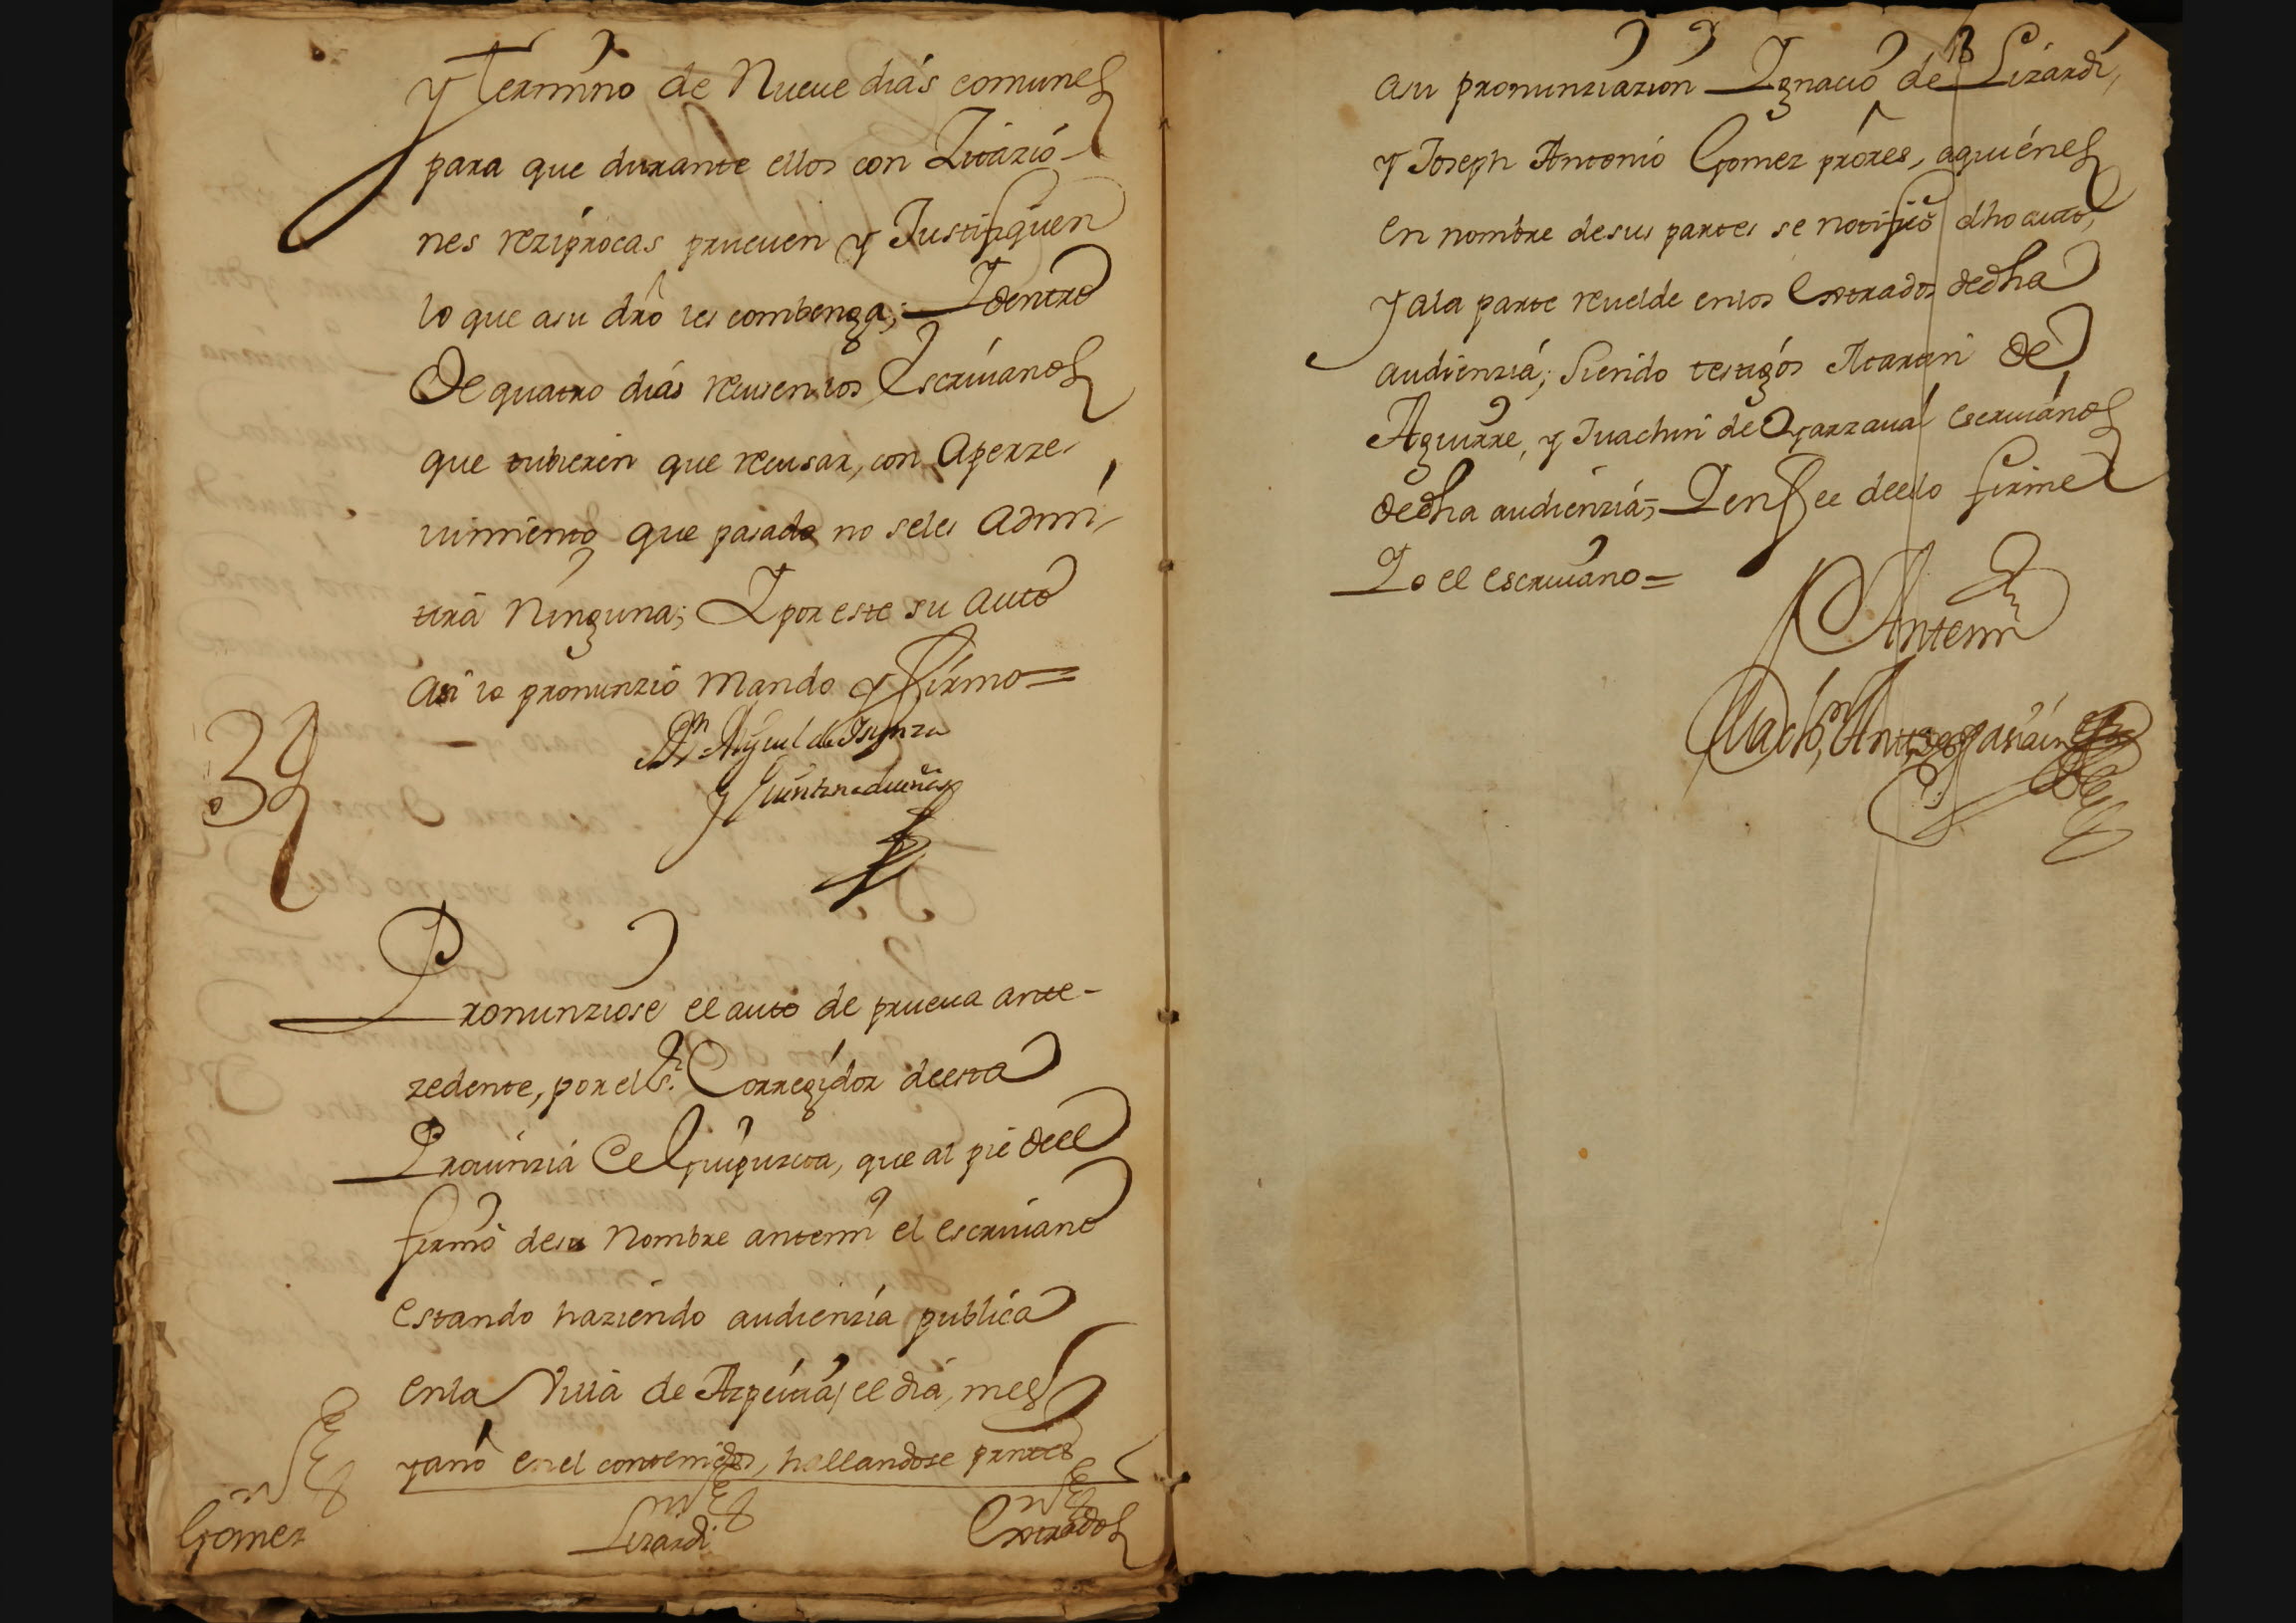 y termino de Nueue dias comunes
para que durante ellos con Zitazio-
nes reziprocas prueuen y Justifiquen
lo que asu dro les combenga; Y dentro
De quatro dias recusen los Escriuanos
que tubieren que recusar, con aperze-
uimiento que pasado no seles admi-
tira Ninguna; Y por este su auto
asi lo pronunzio mando y firmo=
Dn Miguel de
y
Pronunziose el auto de prueua ante-
zedente, por el Sr. Corregidor deesta
Prouinzia de Guipuzcoa, que al pie deel
firmo desu Nombre antemi el escriuano
estando haziendo audienzia publica
enla Villa de Azpeitia, el dia, mes
y año enel contenidos, hallandose prntes
Gomez Lizardi Extrados
asu pronunziazion Ygnacio de Lizardi,
y Joseph Antonio Gomez prores, aquienes
en nombre desus partes se notifico dho auto,
y ala parte reuelde enlos Extrados dedha
audienzia; Siendo testigos Martin de
Aguirre, y Juachin de Oyarzaual escriuanos
dedha audienzia; Y en Fee deello firme
Yo el escriuano=
Antemi